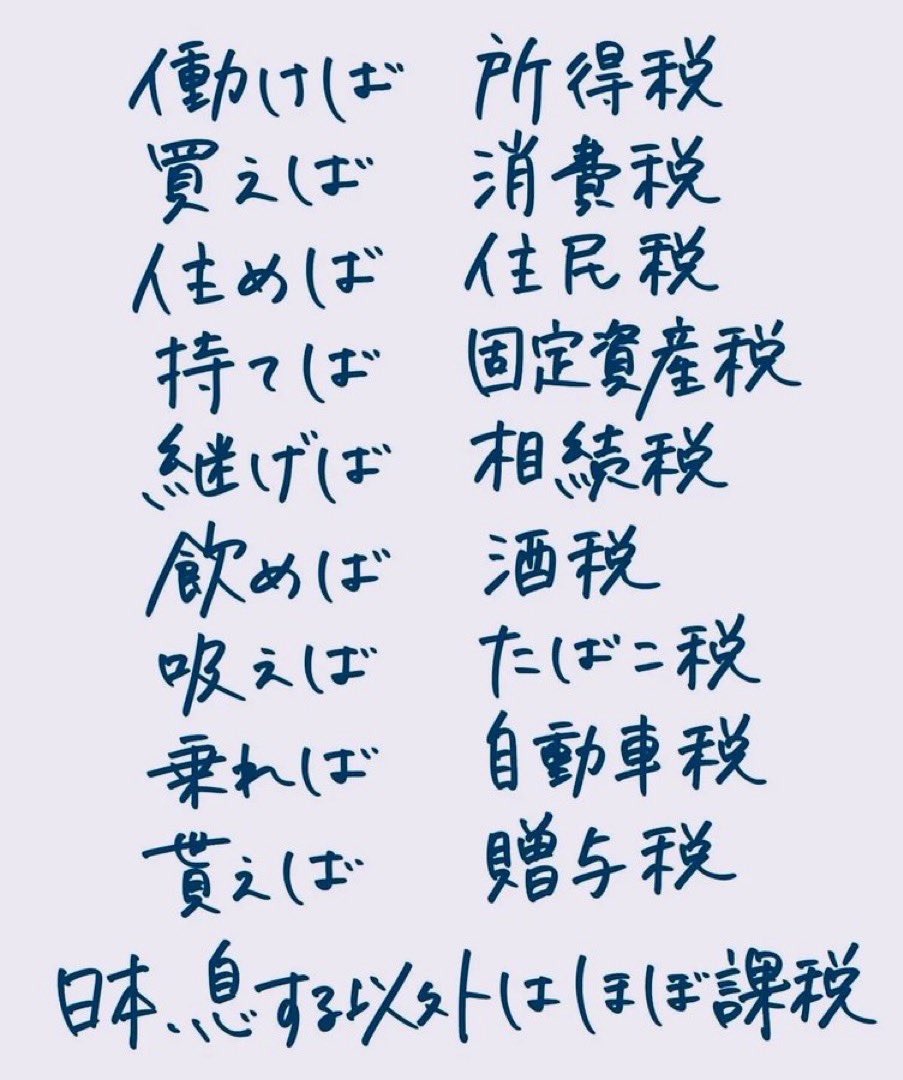 働けば 所得税
買えば 消費税
住めば 住民税
持てば 固定資産税
継げば 相続税
飲めば 酒税
吸えば たばこ税
乗れば 自動車税
貰えば 贈与税
日本、息する以外はほぼ課税